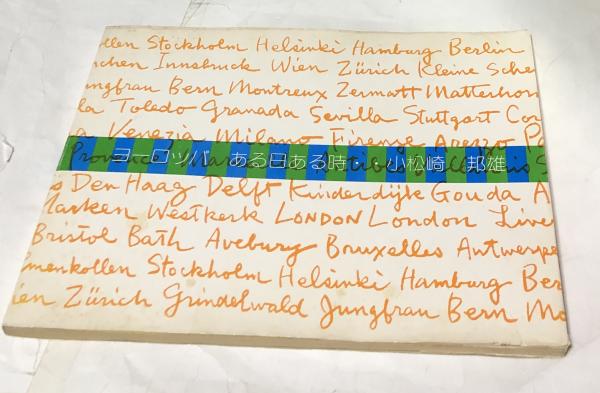 ollen Stockholm Helsinki Hamburg Berlin
nchen Innsbruck Wien Zürich Kleine Sche
ungfrau Bern Montreux Zermatt Matterhorn
la Toledo Granada Sevilla Stuttgart Cor
a Venezia Milano Firenze Arezzo Pa
ヨーロッパ ある日ある時 小松崎 邦雄
Provence
s Den Haag Delft Kinderdijk Gouda A
Marken Westkerk LONDON London Live
Bristol Bath Avebury Bruxelles Antwerpe
menkollen Stockholm Helsinki Hamburg Ber
ien Zürich Grindelwald Jungfrau Bern Mo